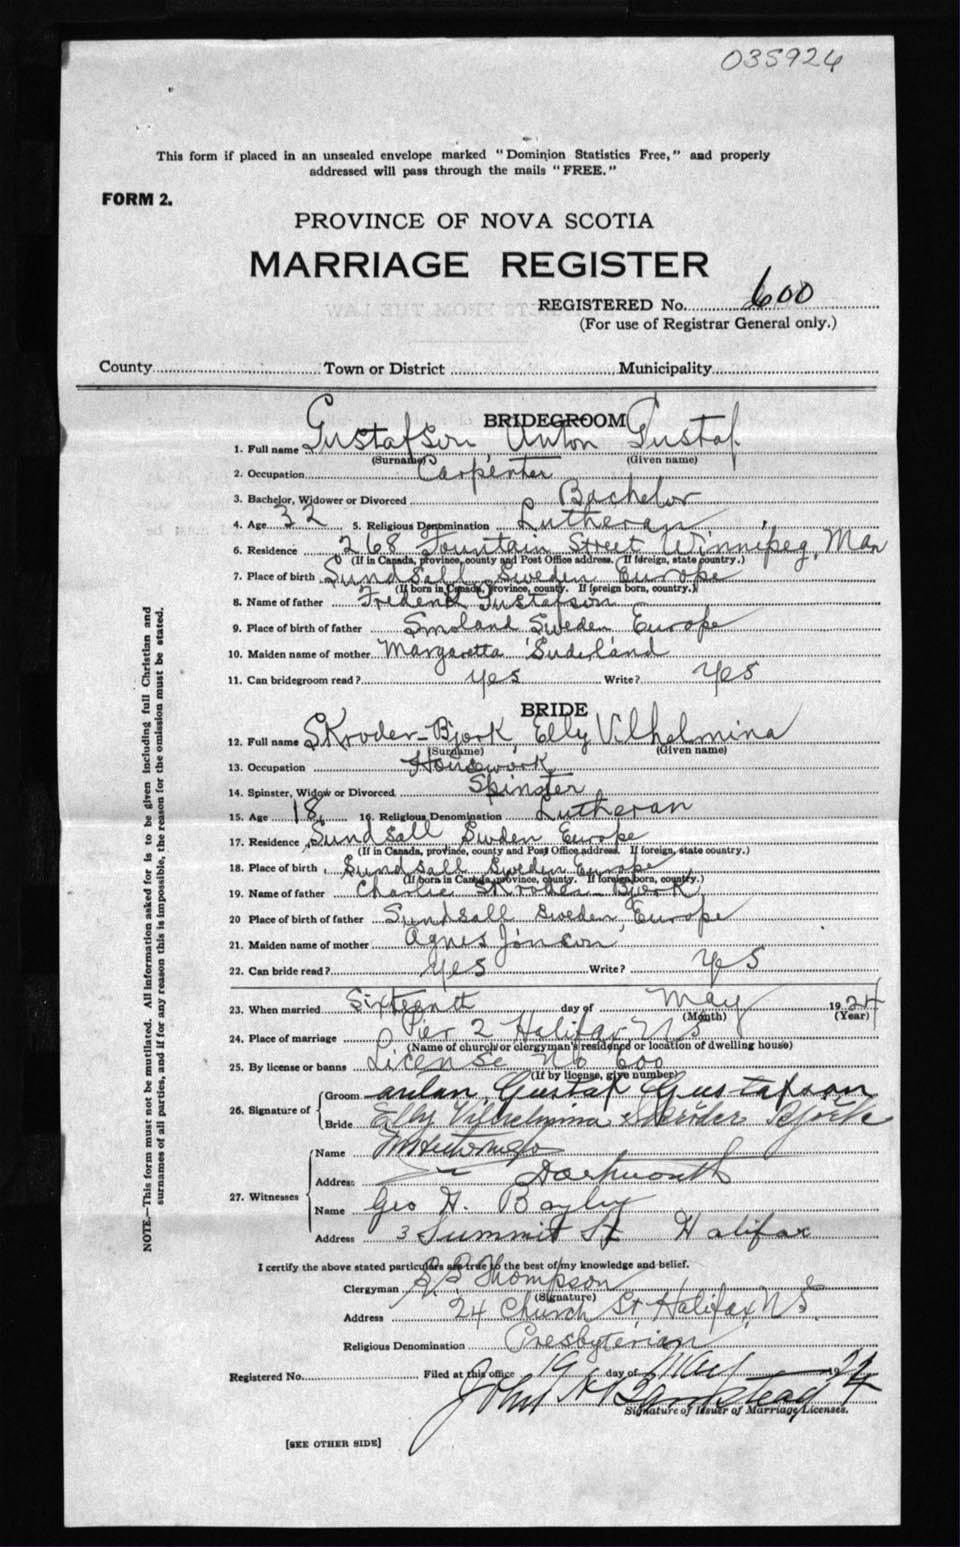 035924
This form if placed in an unsealed envelope marked "Dominion Statistics Free," and properly
addressed will pass through the mails "FREE."
FORM 2.
PROVINCE OF NOVA SCOTIA
MARRIAGE REGISTER
REGISTERED No. 600
(For use of Registrar General only.)
County Town or District Municipality
BRIDEGROOM
1. Full name Gustafson Anton Gustaf
(Surname) (Given name)
2. Occupation Carpenter
3. Bachelor, Widower or Divorced Bachelor
4. Age 32 5. Religious Denomination Lutheran
6. Residence 268 Fountain Street Winnipeg, Man
(If in Canada, province, county and Post Office address. If foreign, state country.)
7. Place of birth Sundsall Sweden Europe
(If born in Canada, province, county. If foreign born, country.)
8. Name of father Frederik Gustafson
9. Place of birth of father Smoland Sweden Europe
10. Maiden name of mother Margaretta Suderland
11. Can bridegroom read? yes Write? yes
BRIDE
12. Full name Skroder-Bjork, Elly Vilhelmina
(Surname) (Given name)
13. Occupation Housework
14. Spinster, Widow or Divorced Spinster
15. Age 18 16. Religious Denomination Lutheran
17. Residence Sundsall Sweden Europe
(If in Canada, province, county and Post Office address. If foreign, state country.)
18. Place of birth Sundsall Sweden Europe
(If born in Canada, province, county. If foreign born, country.)
19. Name of father Charlie Skroder Bjork
20 Place of birth of father Sundsall Sweden, Europe
21. Maiden name of mother Agnes Jonson
22. Can bride read? yes Write? yes
23. When married Sixteenth day of May 1924
(Month) (Year)
24. Place of marriage Pier 2 Halifax NS
(Name of church or clergyman's residence or location of dwelling house)
25. By license or banns License No 600
(If by license, give number)
26. Signature of Groom Gustaf Gustafson
Bride Elly Vilhelmina Skröder Bjork
27. Witnesses
Name
Address Dartmouth
Name Geo H. Bayley
Address 3 Summit St Halifax
I certify the above stated particulars are true to the best of my knowledge and belief.
Clergyman Thompson
(Signature)
Address 24 Church St. Halifax, N.S.
Religious Denomination Presbyterian
Registered No. Filed at this office 19 day of May 1924
John H Barnstead
Signature of Issuer of Marriage Licenses.
[SEE OTHER SIDE]
NOTE.—This form must not be mutilated. All information asked for is to be given including full Christian and
surnames of all parties, and if for any reason this is impossible, the reason for the omission must be stated.